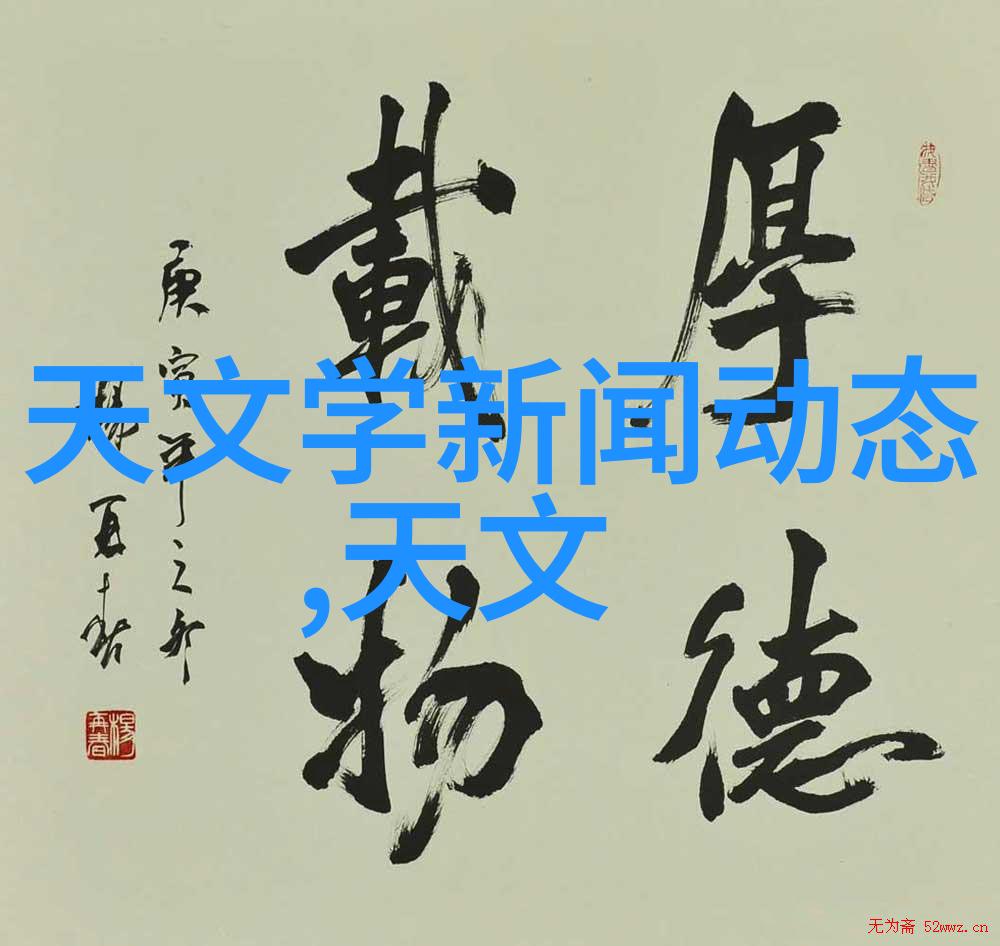 厚德
載物
庚寅
楊再春
楊再春
天文学新闻动态
,天文
无为斋 52wwz.cn